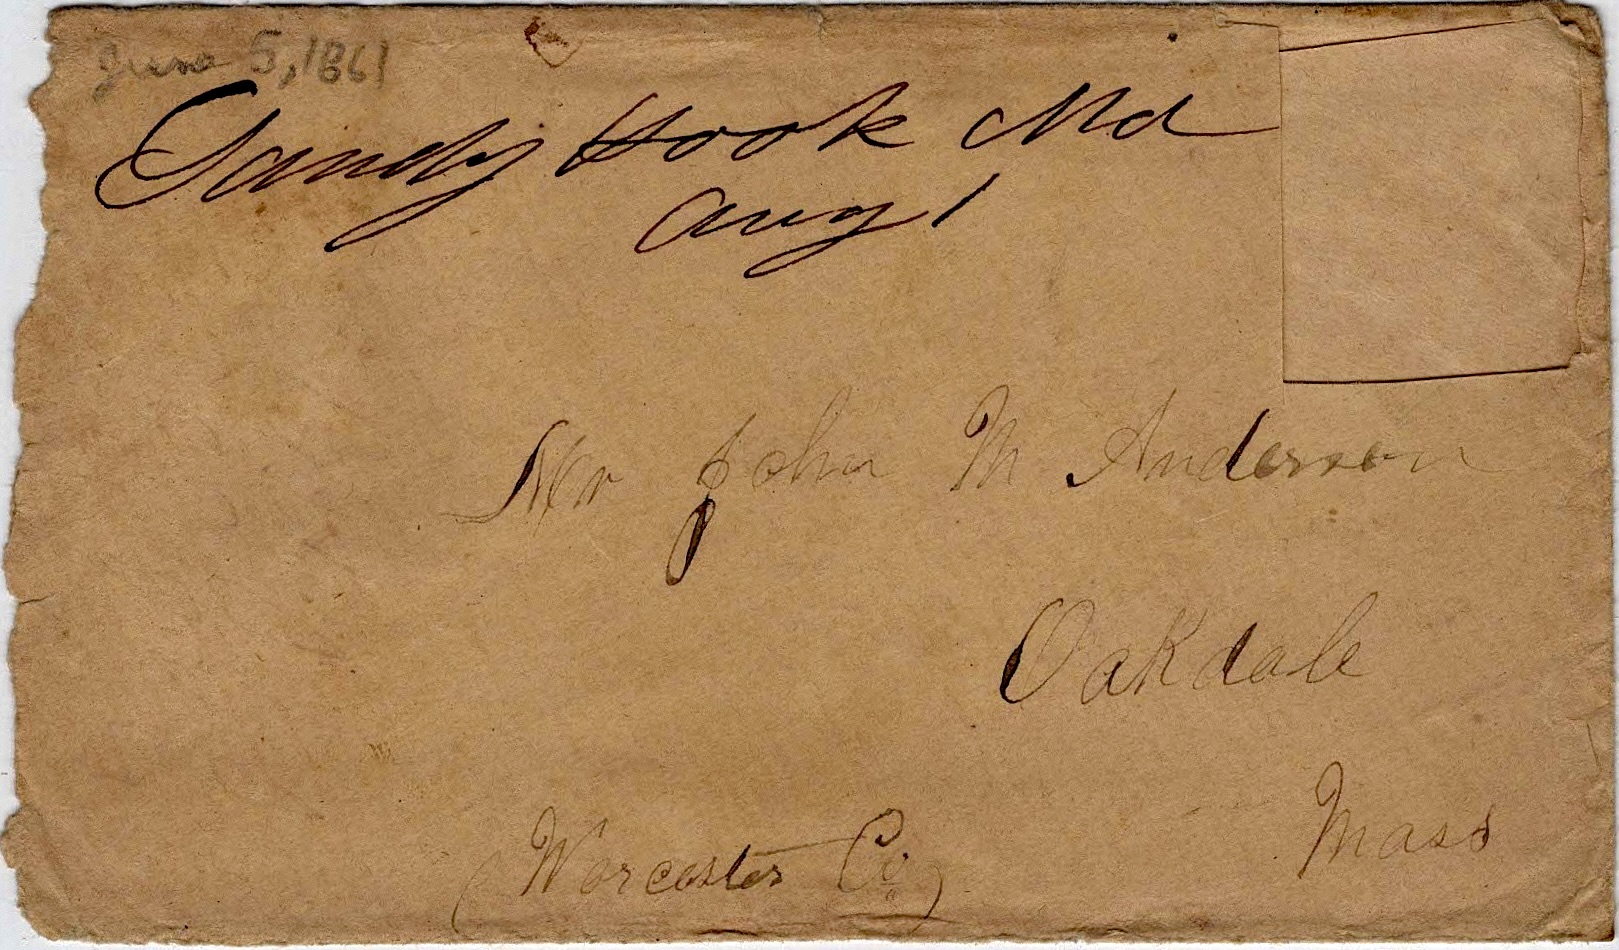 June 5, 1861
Sandy Hook Md
Aug 1
Mr John M Anderson
Oakdale
Mass
(Worcester Co)